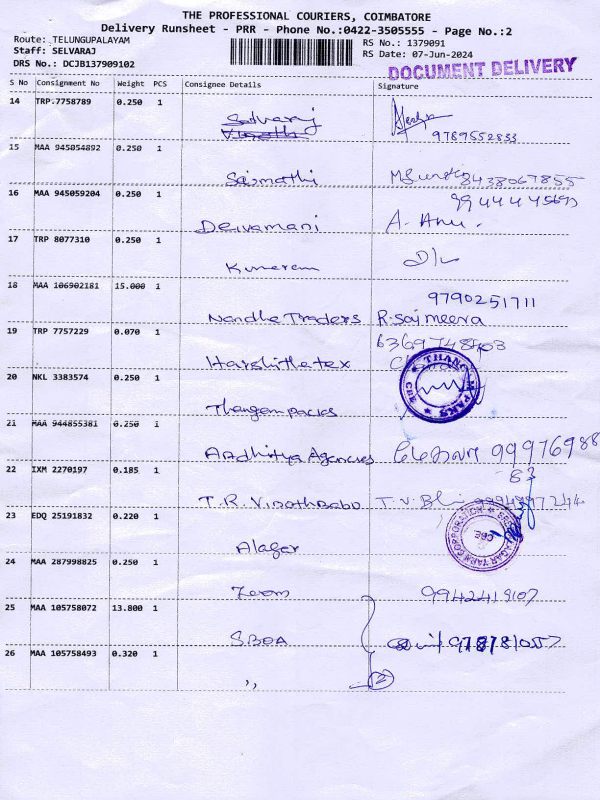 THE PROFESSIONAL COURIERS, COIMBATORE
Delivery Runsheet - PRR - Phone No.:0422-3505555 - Page No.:2
Route: TELUNGUPALAYAM
RS No.: 1379091
Staff: SELVARAJ
RS Date: 07-Jun-2024
DRS No.: DCJB137909102
DOCUMENT DELIVERY
S No Consignment No Weight PCS Consignee Details Signature
14 TRP.7758789 0.250 1
Selvaraj
Vinoth
9789552833
15 MAA 945054892 0.250 1
Saimathi 8438067855
16 MAA 945059204 0.250 1
Deivamani A. Anu.
17 TRP 8077310 0.250 1
Kumaram
18 MAA 106902181 15.000 1
9790251711
Nandha Traders R.Saimeera
19 TRP 7757229 0.070 1
6369748403
Harshitha tex
20 NKL 3383574 0.250 1
THANGAM PAKS
CBE
Thangam packs
21 MAA 944855381 0.250 1
Aadhitya Agencies 99976988
83
22 IXM 2270197 0.185 1
T.R. Vinoth Babu
23 EDQ 25191832 0.220 1
YARN CORPORATION
CBE
Alager
24 MAA 287998825 0.250 1
Zoom 9942419107
25 MAA 105758072 13.800 1
SBOA
26 MAA 105758493 0.320 1
,, 2